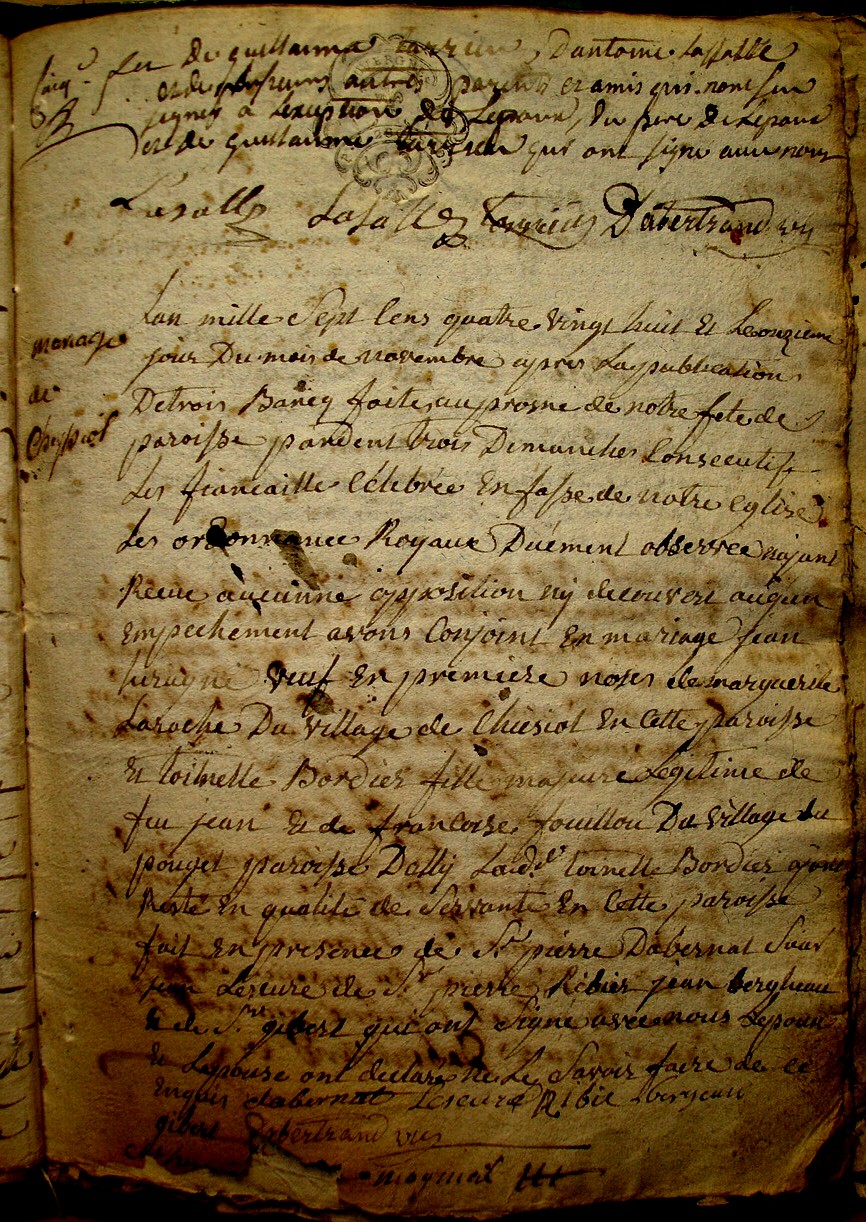 feu de guillaume tarrieu, Dantoine Lassalle
et de plusieurs autres parents et amis qui nont su
signer a Lexeption de Lepoux, du pere de Lepoux
et de guillaume tarrieu qui ont signe avec nous
Lasalle Lasalle tarrieu Dabertrand
mariage
de
Lan mille Sept Cens quatre vingt huit Et Le onzieme
jour Du mois de novembre apres La publication
De trois Banq faite au prosne de notre fete de
paroisse pandent trois Dimanches Consecutifs
Les fiancaille Célébrée En fasse de notre Eglise
Les ordonnance Royaux Duément observee najant
Reçue aucunne opposition ny decouvert auqun
Empechement avons Conjoint En mariage jean
veuf En premiere noses de marguerite
Laroche Du village de Chiesiol En Cette paroisse
Et toinette Bordier fille majeure Legitime de
feu jean Et de francoise fouillou Du village du
pouget paroisse Dally Lad.e toinette Bordier
Resté En qualité de Servante En Cette paroisse
fait En presence de Sr pierre Dabernat
jean Leseure de Sr pierre Ribier jean bergheau
& de Sr gibert qui ont Signe avec nous Lepoux
Et Lepouse ont declaré ne Le Savoir faire de ce
Enquis dabernat Leseure Ribie berjeau
gibert Dabertrand